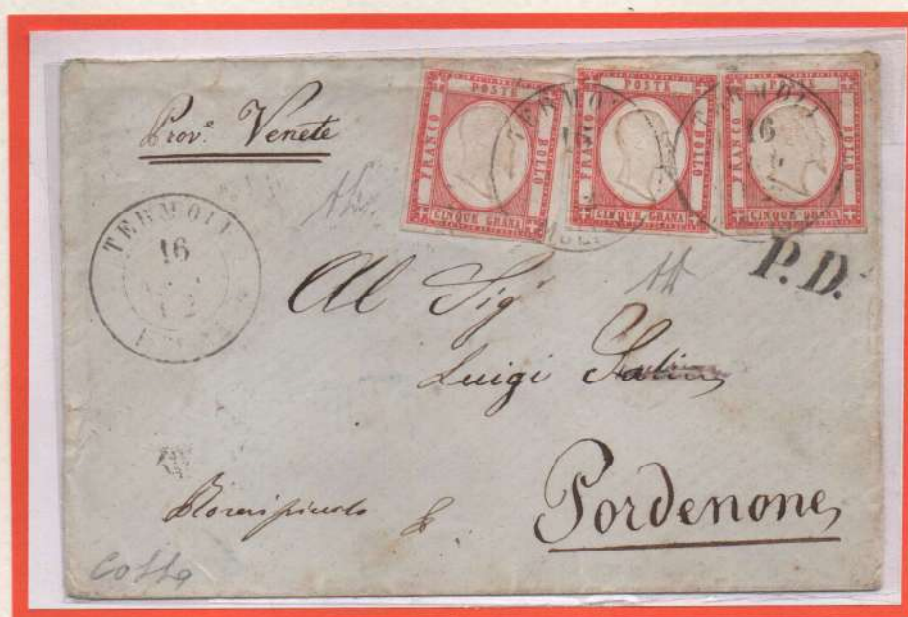 Prov.e Venete
POSTE
FRANCO
BOLLO
CINQUE GRANA
POSTE
FRANCO
BOLLO
CINQUE GRANA
POSTE
FRANCO
BOLLO
CINQUE GRANA
TERMOLI
16
TERMOLI
16
TERMOLI
16
P.D.
Al Sig.r
Luigi
Pordenone